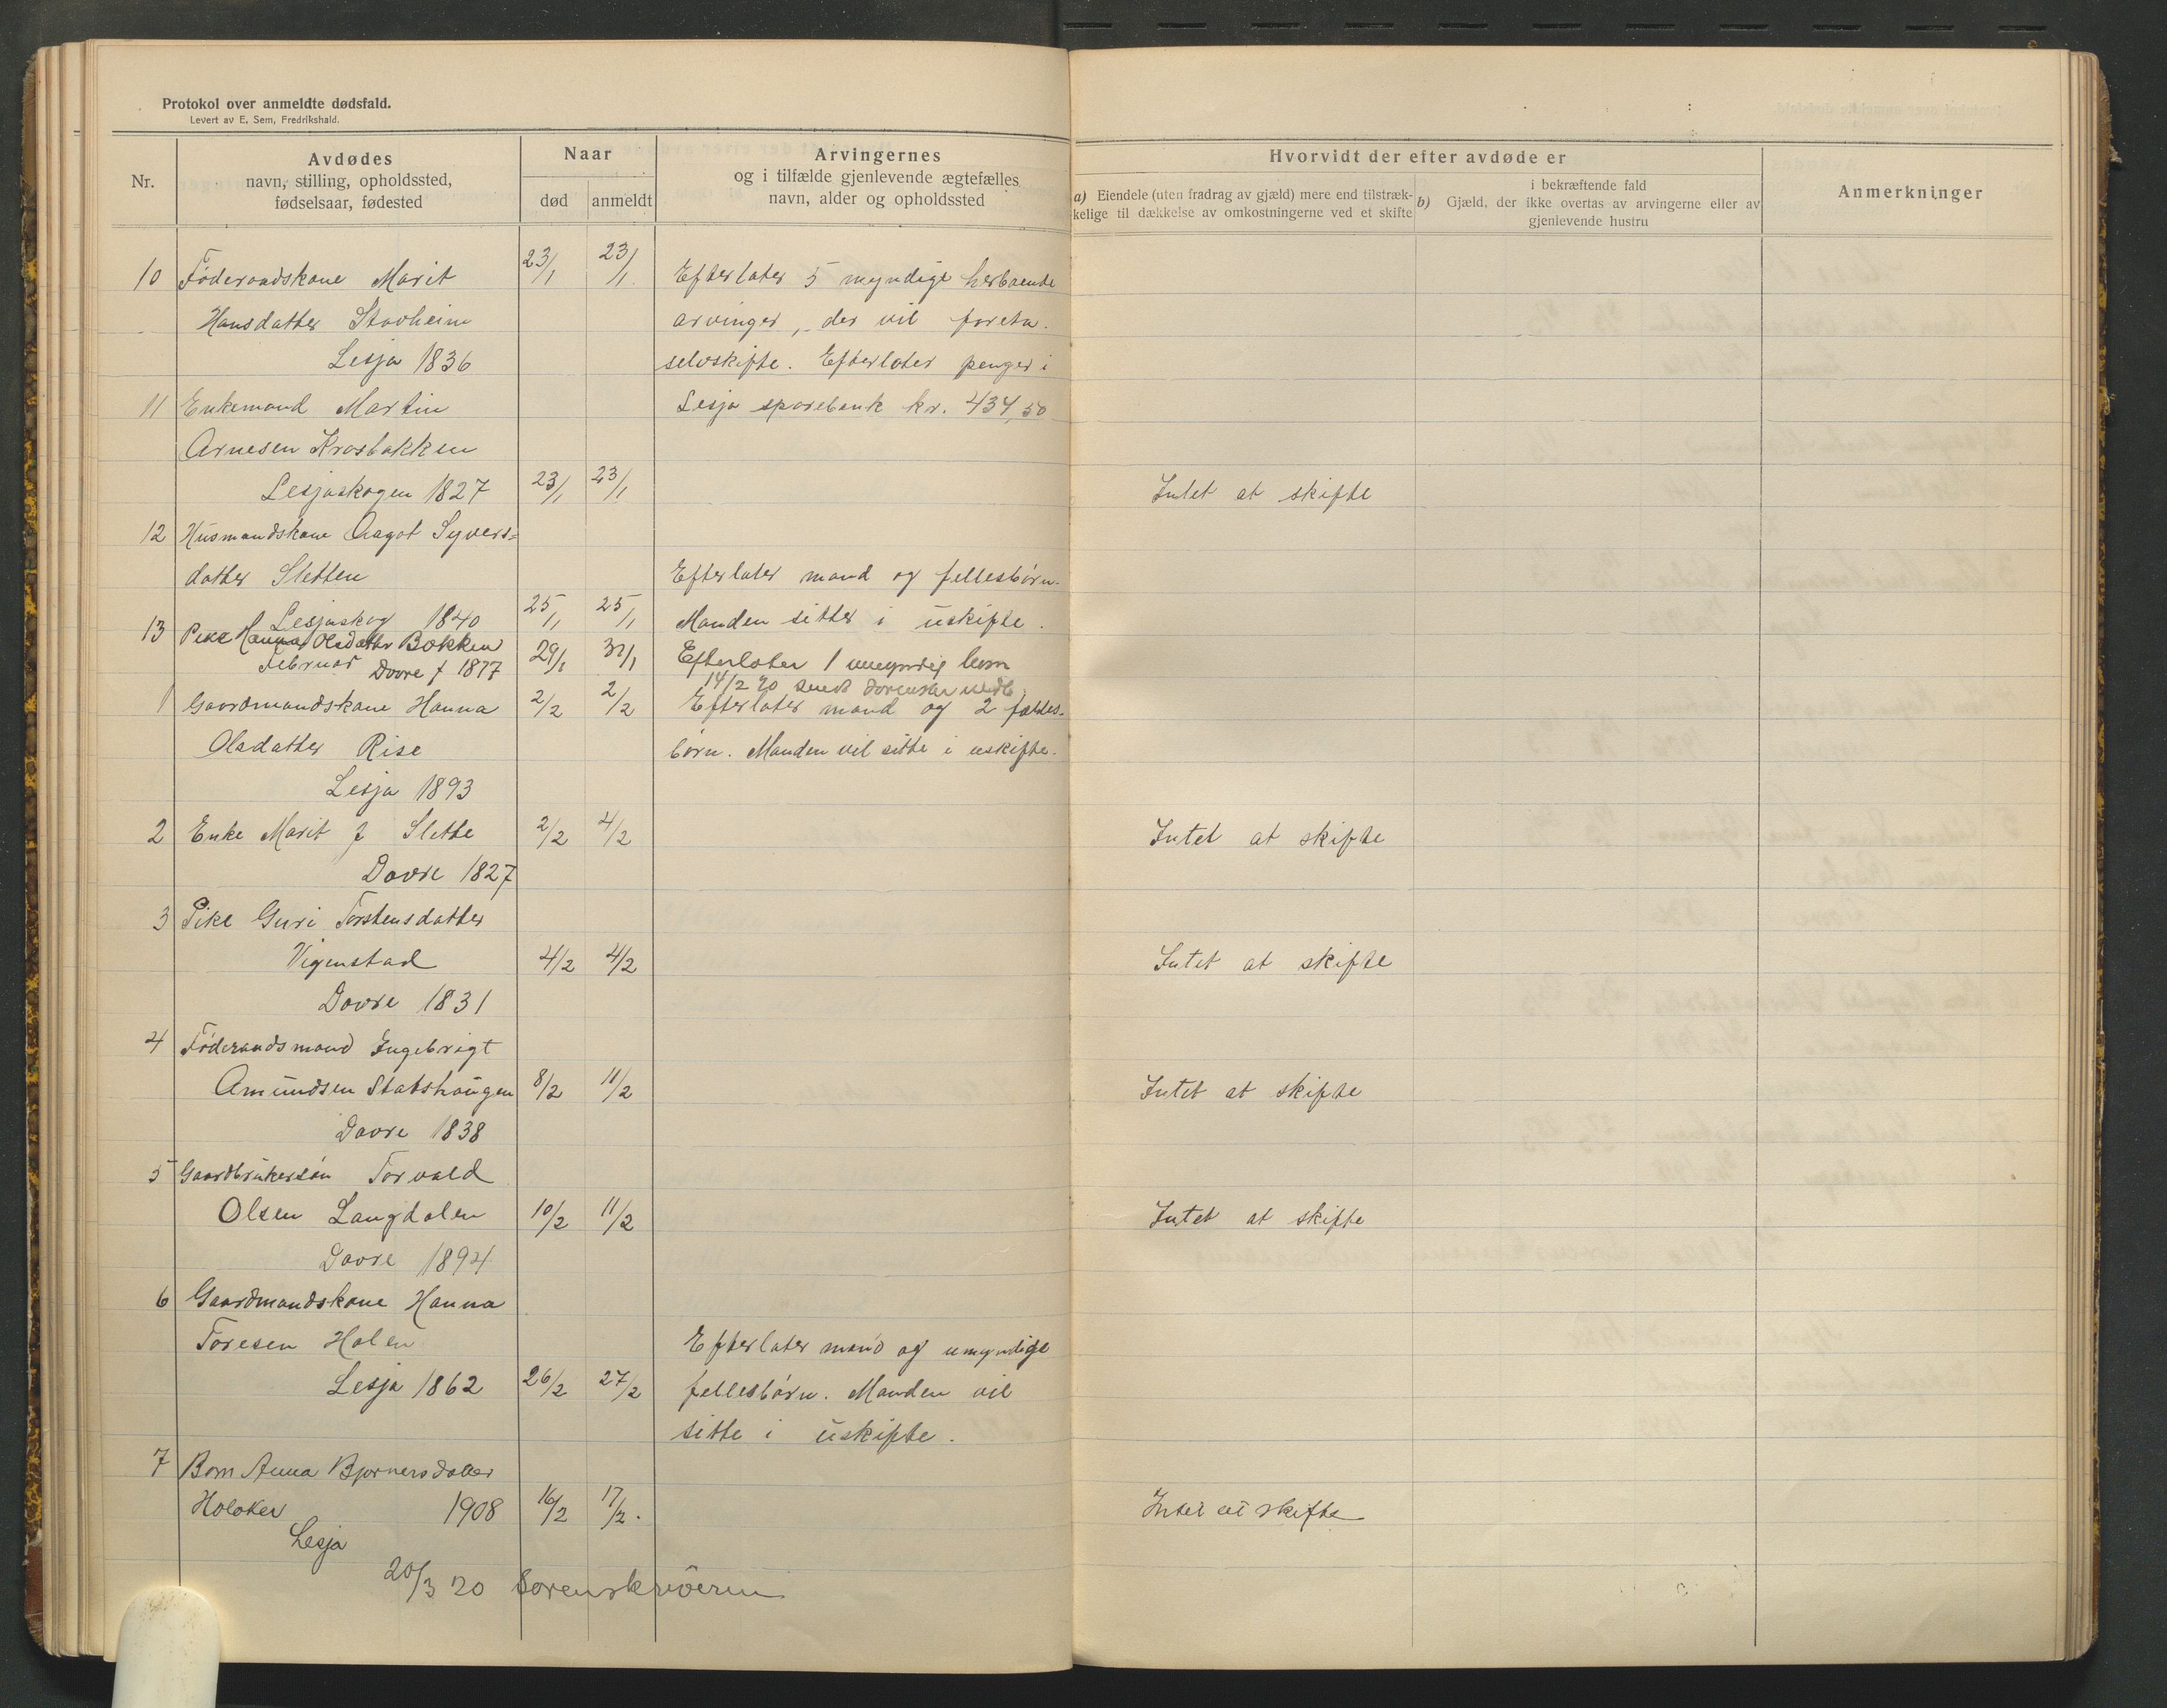 Protokol over anmeldte dødsfald.
Levert av E. Sem, Fredrikshald.
Nr.
Avdødes
navn, stilling, opholdssted,
fødselsaar, fødested
Naar
død
anmeldt
Arvingernes
og i tilfælde gjenlevende ægtefælles
navn, alder og opholdssted
Hvorvidt der efter avdøde er
a) Eiendele (uten fradrag av gjæld) mere end tilstræk-
kelige til dækkelse av omkostningerne ved et skifte
i bekræftende fald
b) Gjæld, der ikke overtas av arvingerne eller av
gjenlevende hustru
Anmerkninger
10 Föderaadskone Marit 23/1 23/1 Efterlater 5 myndige herboende
Hansdatter Stavheim arvinger, der vil foreta
Lesja 1836 selvskifte. Efterlater penger i
11 Enkemand Martin Lesja sparebank kr. 434,50
Arnesen Krosbakken
Lesjaskogen 1827 23/1 23/1 Intet at skifte
12 Husmandskone Aagot Syvers-
datter Sletten Efterlater mand og fellesbörn.
Lesjaskog 1840 25/1 25/1 Manden sitter i uskifte.
13 Pike Hanna Olsdatter Bakken 29/1 31/1 Efterlater 1 umyndig barn
Februar Dovre f 1877 14/2 20 sendt
1 Gaardmandskone Hanna 2/2 2/2 Efterlater mand og 2 felles-
Olsdatter Rise börn. Manden vil sitte i uskifte.
Lesja 1893
2 Enke Marit J Slette 2/2 4/2 Intet at skifte
Dovre 1827
3 Pike Guri Torstensdatter
Vigenstad 4/2 4/2 Intet at skifte
Dovre 1831
4 Föderaadsmand Ingebrigt
Amundsen Statshaugen 8/2 11/2 Intet at skifte
Dovre 1838
5 Gaardbrukersön Torvald
Olsen Langdalen 10/2 11/2 Intet at skifte
Dovre 1894
6 Gaardmandskone Hanna
Toresen Holen Efterlater mand og umyndige
Lesja 1862 26/2 27/2 fellesbörn. Manden vil
sitte i uskifte.
7 Barn Anna Bjørnersdatter
Holaker 1908 16/2 17/2. Intet at skifte
Lesja
20/3 20 Sorenskriveren